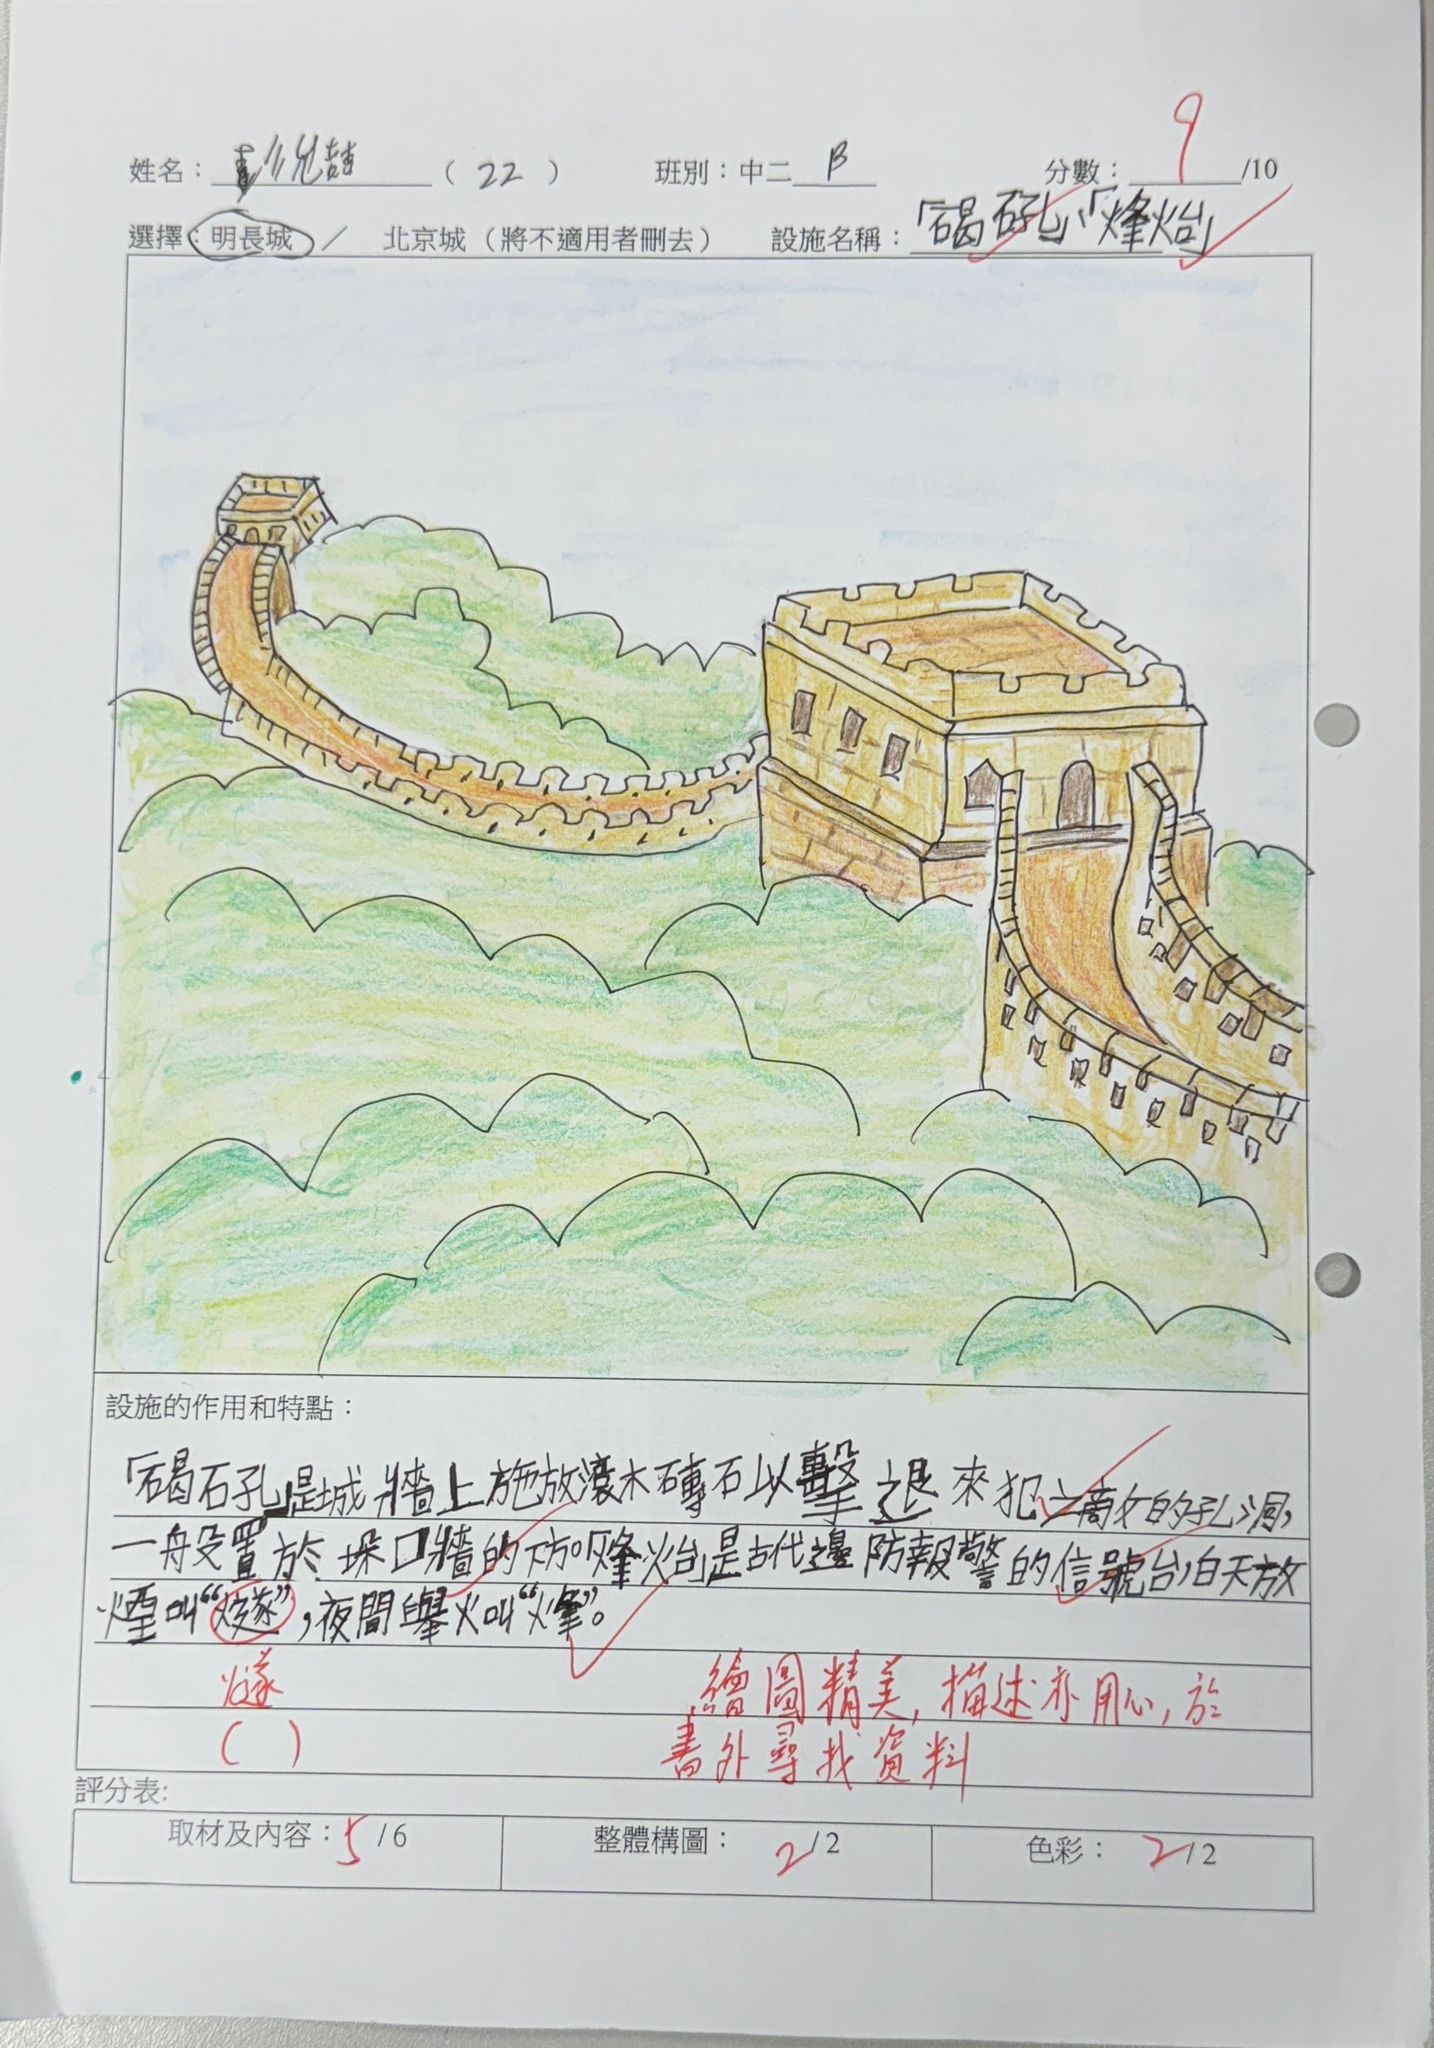 姓名：彭兊喆（22） 班別：中二 B 分數：9/10
選擇：明長城 / 北京城（將不適用者刪去） 設施名稱：「碣石孔」、「烽火台」
設施的作用和特點：
「碣石孔」是城牆上施放滾木磚石以擊退來犯之敵的孔洞，
一般設置於垛口牆的下方。「烽火台」是古代邊防報警的信號台，白天放
煙叫“燧”，夜間舉火叫“烽”。
燧
（ ）
繪圖精美，描述亦用心，於
書外尋找資料
評分表:
取材及內容：5/6 整體構圖：2/2 色彩：2/2